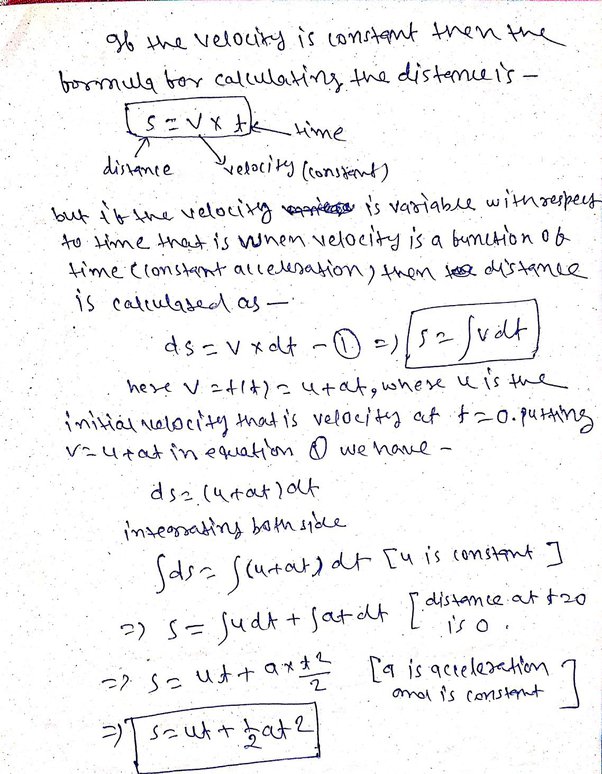 If the velocity is constant then the
formula for calculating the distance is –
s = v × t ← time
distance velocity (constant)
but if the velocity is variable with respect
to time that is when velocity is a function of
time (constant acceleration) then distance
is calculated as –
ds = v × dt – ① ⇒ s = ∫vdt
here v = f(t) = u+at, where u is the
initial velocity that is velocity at t=0. putting
v=u+at in equation ① we have –
ds = (u+at)dt
integrating both side
∫ds = ∫(u+at) dt [u is constant]
⇒ s = ∫udt + ∫at dt [distance at t=0
is 0.
⇒ s = ut + a × t²/2 [a is acceleration
and is constant]
⇒ s = ut + ½at²